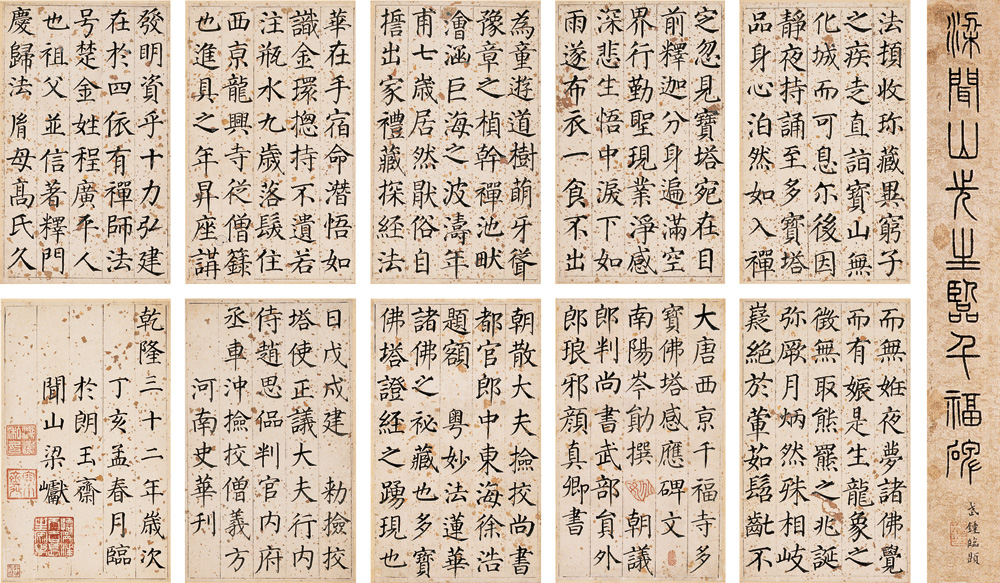 梁聞山先生臨千福碑
法頂收珎藏異窮子
之疾走直詣寶山無
化城而可息尔後因
靜夜持誦至多寶塔
品身心泊然如入禪
定忽見寶塔宛在目
前釋迦分身遍滿空
界行勤聖現業淨感
深悲生悟中淚下如
雨遂布衣一食不出
為童遊道樹萌牙聳
豫章之楨幹禪池畎
澮涵巨海之波濤年
甫七歲居然猒俗自
擔出家禮藏探經法
華在手宿命潛悟如
識金環揔持不遺若
注瓶水九歲落髮住
西京龍興寺從僧籙
也進具之年昇座講
發明資乎十力弘建
在於四依有禪師法
号楚金姓程廣平人
也祖父並信著釋門
慶歸法胤母高氏久
而無姙夜夢諸佛覺
而有娠是生龍象之
徵無取熊羆之兆誕
弥厥月炳然殊相岐
嶷絕於葷茹髫齔不
大唐西京千福寺多
寶佛塔感應碑文
南陽岑勛撰 朝議
郎判尚書武部負外
郎琅邪顏真卿書
朝散大夫撿挍尚書
都官郎中東海徐浩
題額 粵妙法蓮華
諸佛之祕藏也多寶
佛塔證經之踴現也
日戊戌建 勑撿挍
塔使正議大夫行內
侍趙思品判官內府
丞車沖撿挍僧義方
河南史華刊
乾隆三十二年歲次
丁亥孟春月臨
於朗玉齋
聞山梁巘